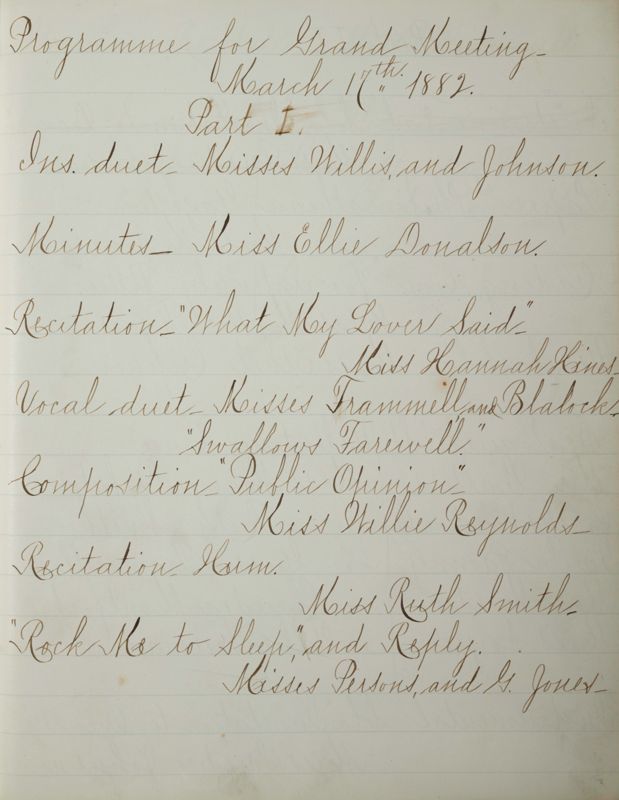 Programme for Grand Meeting_
March 17th. 1882.
Part I.
Ins. duet_ Misses Willis, and Johnson.
Minutes_ Miss Ellie Donalson.
Recitation_ "What My Lover Said"_
Miss Hannah Hines_
Vocal duet_ Misses Trammell, and Blalock_
"Swallows Farewell."
Composition_ "Public Opinion"_
Miss Willie Reynolds_
Recitation_ Hum.
Miss Ruth Smith_
"Rock Me to Sleep," and Reply.
Misses Persons, and G. Jones_